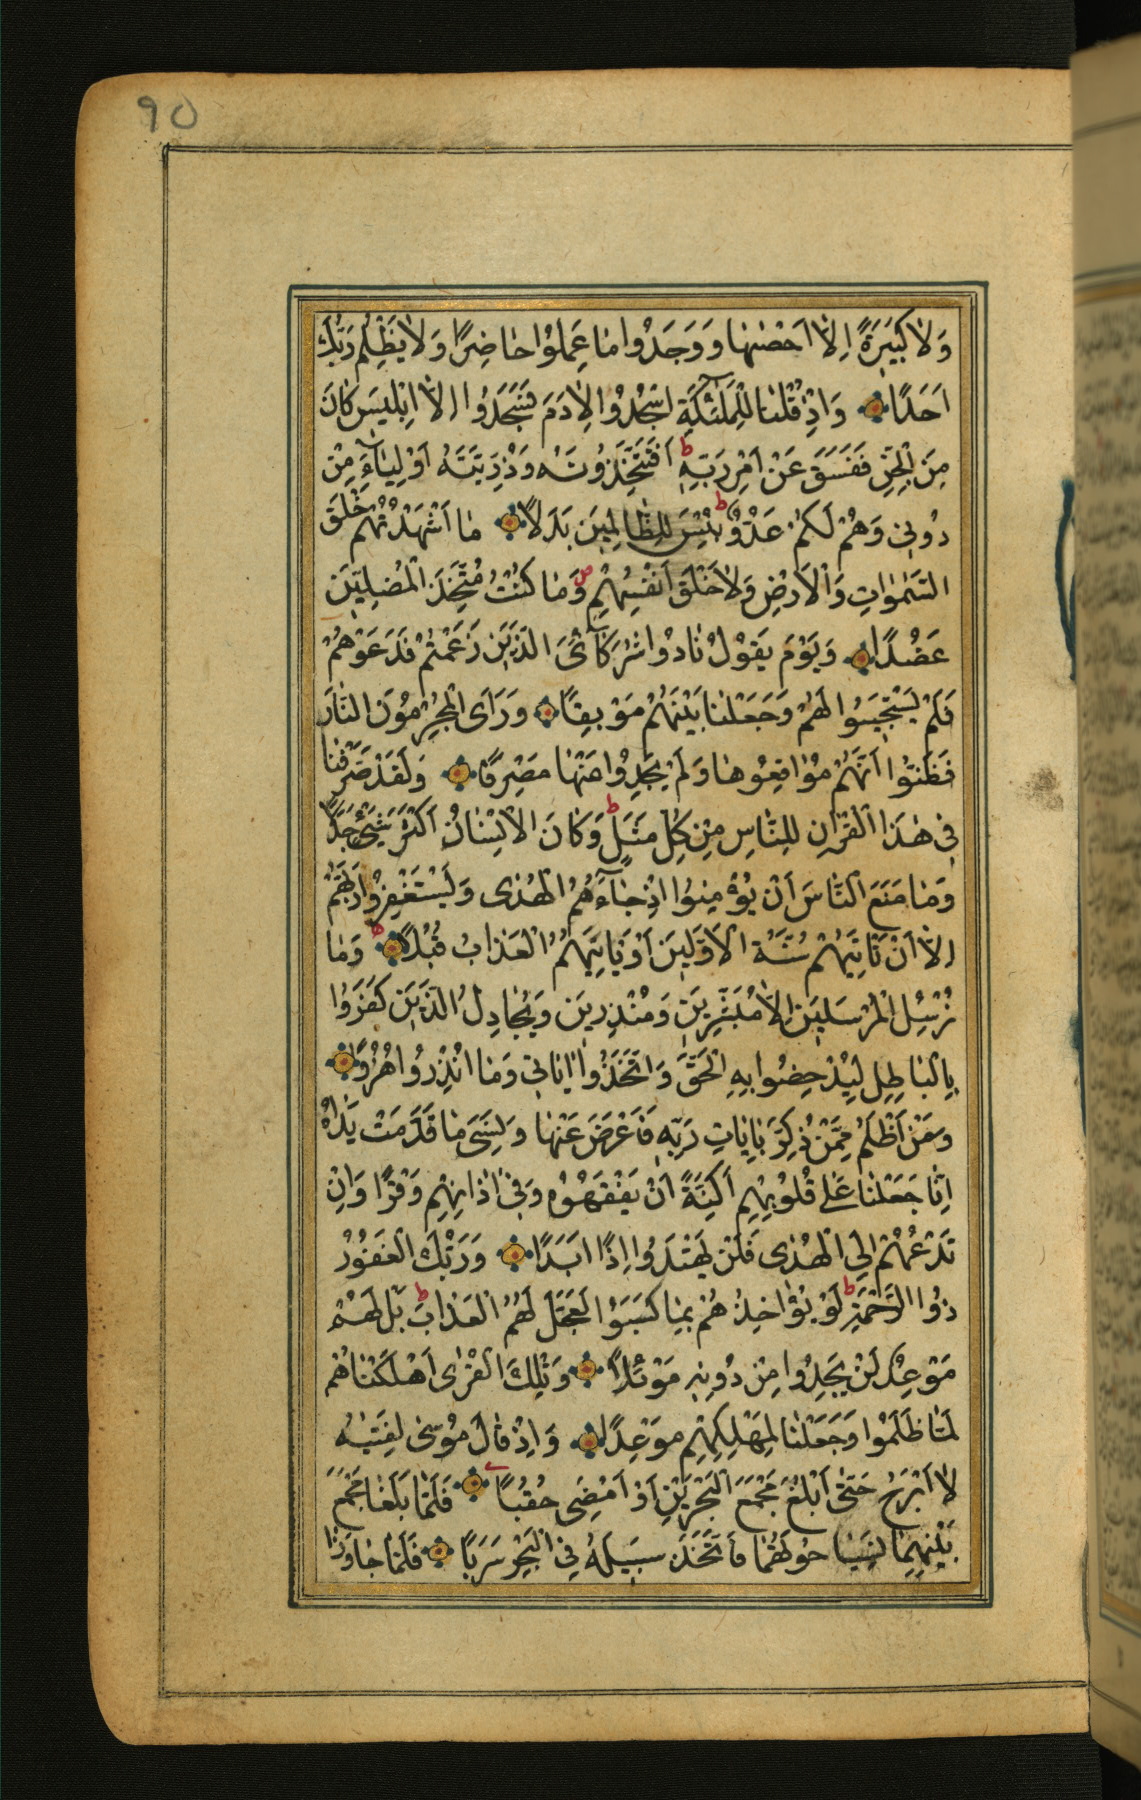 90
وَلَا كَبِيرَةً اِلَّا اَحْصٰىهَا وَوَجَدُوا مَا عَمِلُوا حَاضِرًا وَلَا يَظْلِمُ رَبُّكَ
اَحَدًا وَاِذْ قُلْنَا لِلْمَلٰٓئِكَةِ اسْجُدُوا لِاٰدَمَ فَسَجَدُوا اِلَّا اِبْلِيسَ كَانَ
مِنَ الْجِنِّ فَفَسَقَ عَنْ اَمْرِ رَبِّهٖ ط اَفَتَتَّخِذُونَهُ وَذُرِّيَّتَهُ اَوْلِيَآءَ مِنْ
دُونِي وَهُمْ لَكُمْ عَدُوٌّ ط بِئْسَ لِلظَّالِمِينَ بَدَلًا مَا اَشْهَدْتُهُمْ خَلْقَ
السَّمٰوَاتِ وَالْاَرْضِ وَلَا خَلْقَ اَنْفُسِهِمْ ص وَمَا كُنْتُ مُتَّخِذَ الْمُضِلِّينَ
عَضُدًا وَيَوْمَ يَقُولُ نَادُوا شُرَكَآئِيَ الَّذِينَ زَعَمْتُمْ فَدَعَوْهُمْ
فَلَمْ يَسْتَجِيبُوا لَهُمْ وَجَعَلْنَا بَيْنَهُمْ مَوْبِقًا وَرَاَى الْمُجْرِمُونَ النَّارَ
فَظَنُّوا اَنَّهُمْ مُوَاقِعُوهَا وَلَمْ يَجِدُوا عَنْهَا مَصْرِفًا وَلَقَدْ صَرَّفْنَا
فِي هٰذَا الْقُرْاٰنِ لِلنَّاسِ مِنْ كُلِّ مَثَلٍ ط وَكَانَ الْاِنْسَانُ اَكْثَرَ شَيْءٍ جَدَلًا
وَمَا مَنَعَ النَّاسَ اَنْ يُؤْمِنُوا اِذْ جَآءَهُمُ الْهُدٰى وَيَسْتَغْفِرُوا رَبَّهُمْ
اِلَّا اَنْ تَاْتِيَهُمْ سُنَّةُ الْاَوَّلِينَ اَوْ يَاْتِيَهُمُ الْعَذَابُ قُبُلًا وَمَا
نُرْسِلُ الْمُرْسَلِينَ اِلَّا مُبَشِّرِينَ وَمُنْذِرِينَ وَيُجَادِلُ الَّذِينَ كَفَرُوا
بِالْبَاطِلِ لِيُدْحِضُوا بِهِ الْحَقَّ وَاتَّخَذُوا اٰيَاتِي وَمَا اُنْذِرُوا هُزُوًا
وَمَنْ اَظْلَمُ مِمَّنْ ذُكِّرَ بِاٰيَاتِ رَبِّهٖ فَاَعْرَضَ عَنْهَا وَنَسِيَ مَا قَدَّمَتْ يَدَاهُ
اِنَّا جَعَلْنَا عَلٰى قُلُوبِهِمْ اَكِنَّةً اَنْ يَفْقَهُوهُ وَفِي اٰذَانِهِمْ وَقْرًا وَاِنْ
تَدْعُهُمْ اِلَى الْهُدٰى فَلَنْ يَهْتَدُوا اِذًا اَبَدًا وَرَبُّكَ الْغَفُورُ
ذُو الرَّحْمَةِ ط لَوْ يُؤَاخِذُهُمْ بِمَا كَسَبُوا لَعَجَّلَ لَهُمُ الْعَذَابَ ط بَلْ لَهُمْ
مَوْعِدٌ لَنْ يَجِدُوا مِنْ دُونِهٖ مَوْئِلًا وَتِلْكَ الْقُرٰى اَهْلَكْنَاهُمْ
لَمَّا ظَلَمُوا وَجَعَلْنَا لِمَهْلِكِهِمْ مَوْعِدًا وَاِذْ قَالَ مُوسٰى لِفَتٰيهُ
لَا اَبْرَحُ حَتّٰى اَبْلُغَ مَجْمَعَ الْبَحْرَيْنِ اَوْ اَمْضِيَ حُقُبًا فَلَمَّا بَلَغَا مَجْمَعَ
بَيْنِهِمَا نَسِيَا حُوتَهُمَا فَاتَّخَذَ سَبِيلَهُ فِي الْبَحْرِ سَرَبًا فَلَمَّا جَاوَزَا